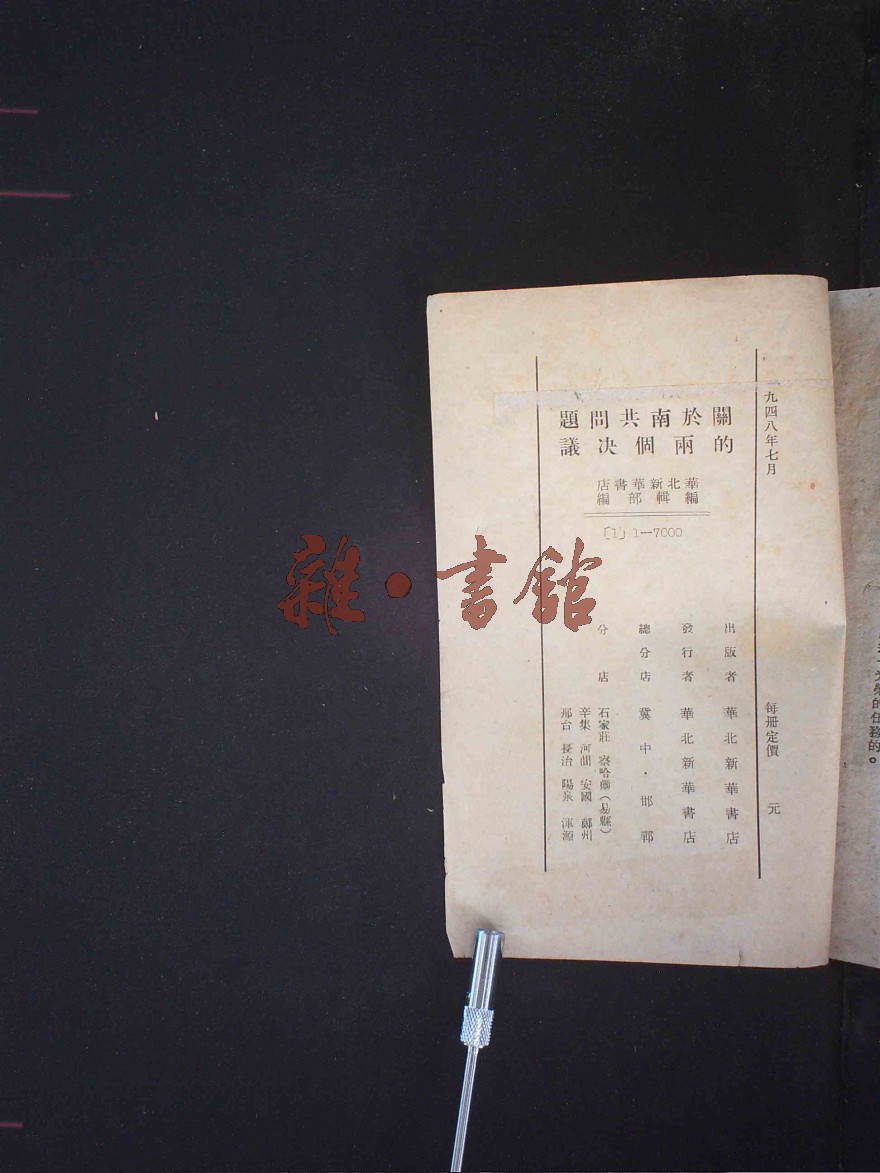 一九四八年七月 每冊定價 元
關於南共問題
的兩個决議
華北新華書店
編輯部編
〔1〕1—7000
出版者 華北新華書店
發行者 華北新華書店
總分店 冀中・邯鄲
分店 石家莊 察哈爾(易縣)
辛集 河間 安國 鄭州
邢台 長治 陽泉 渾源
雜・書館
光榮的任務的。